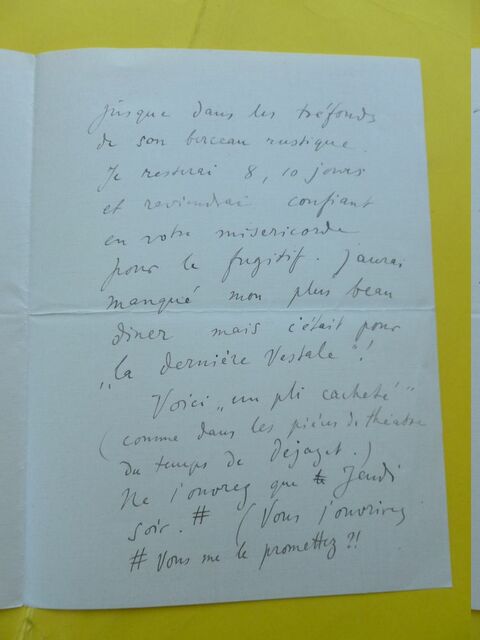 jusque dans les tréfonds
de son berceau rustique.
Je resterai 8, 10 jours
et reviendrai confiant
en votre misericorde
pour le fugitif. j'aurai
manqué mon plus beau
diner mais c'était pour
„la dernière Vestale"!
Voici „un pli cacheté"
(comme dans les pièces de théatre
du temps de Dejazet.)
Ne l'ouvrez que Jeudi
soir. # (Vous l'ouvrirez
# Vous me le promettez?!